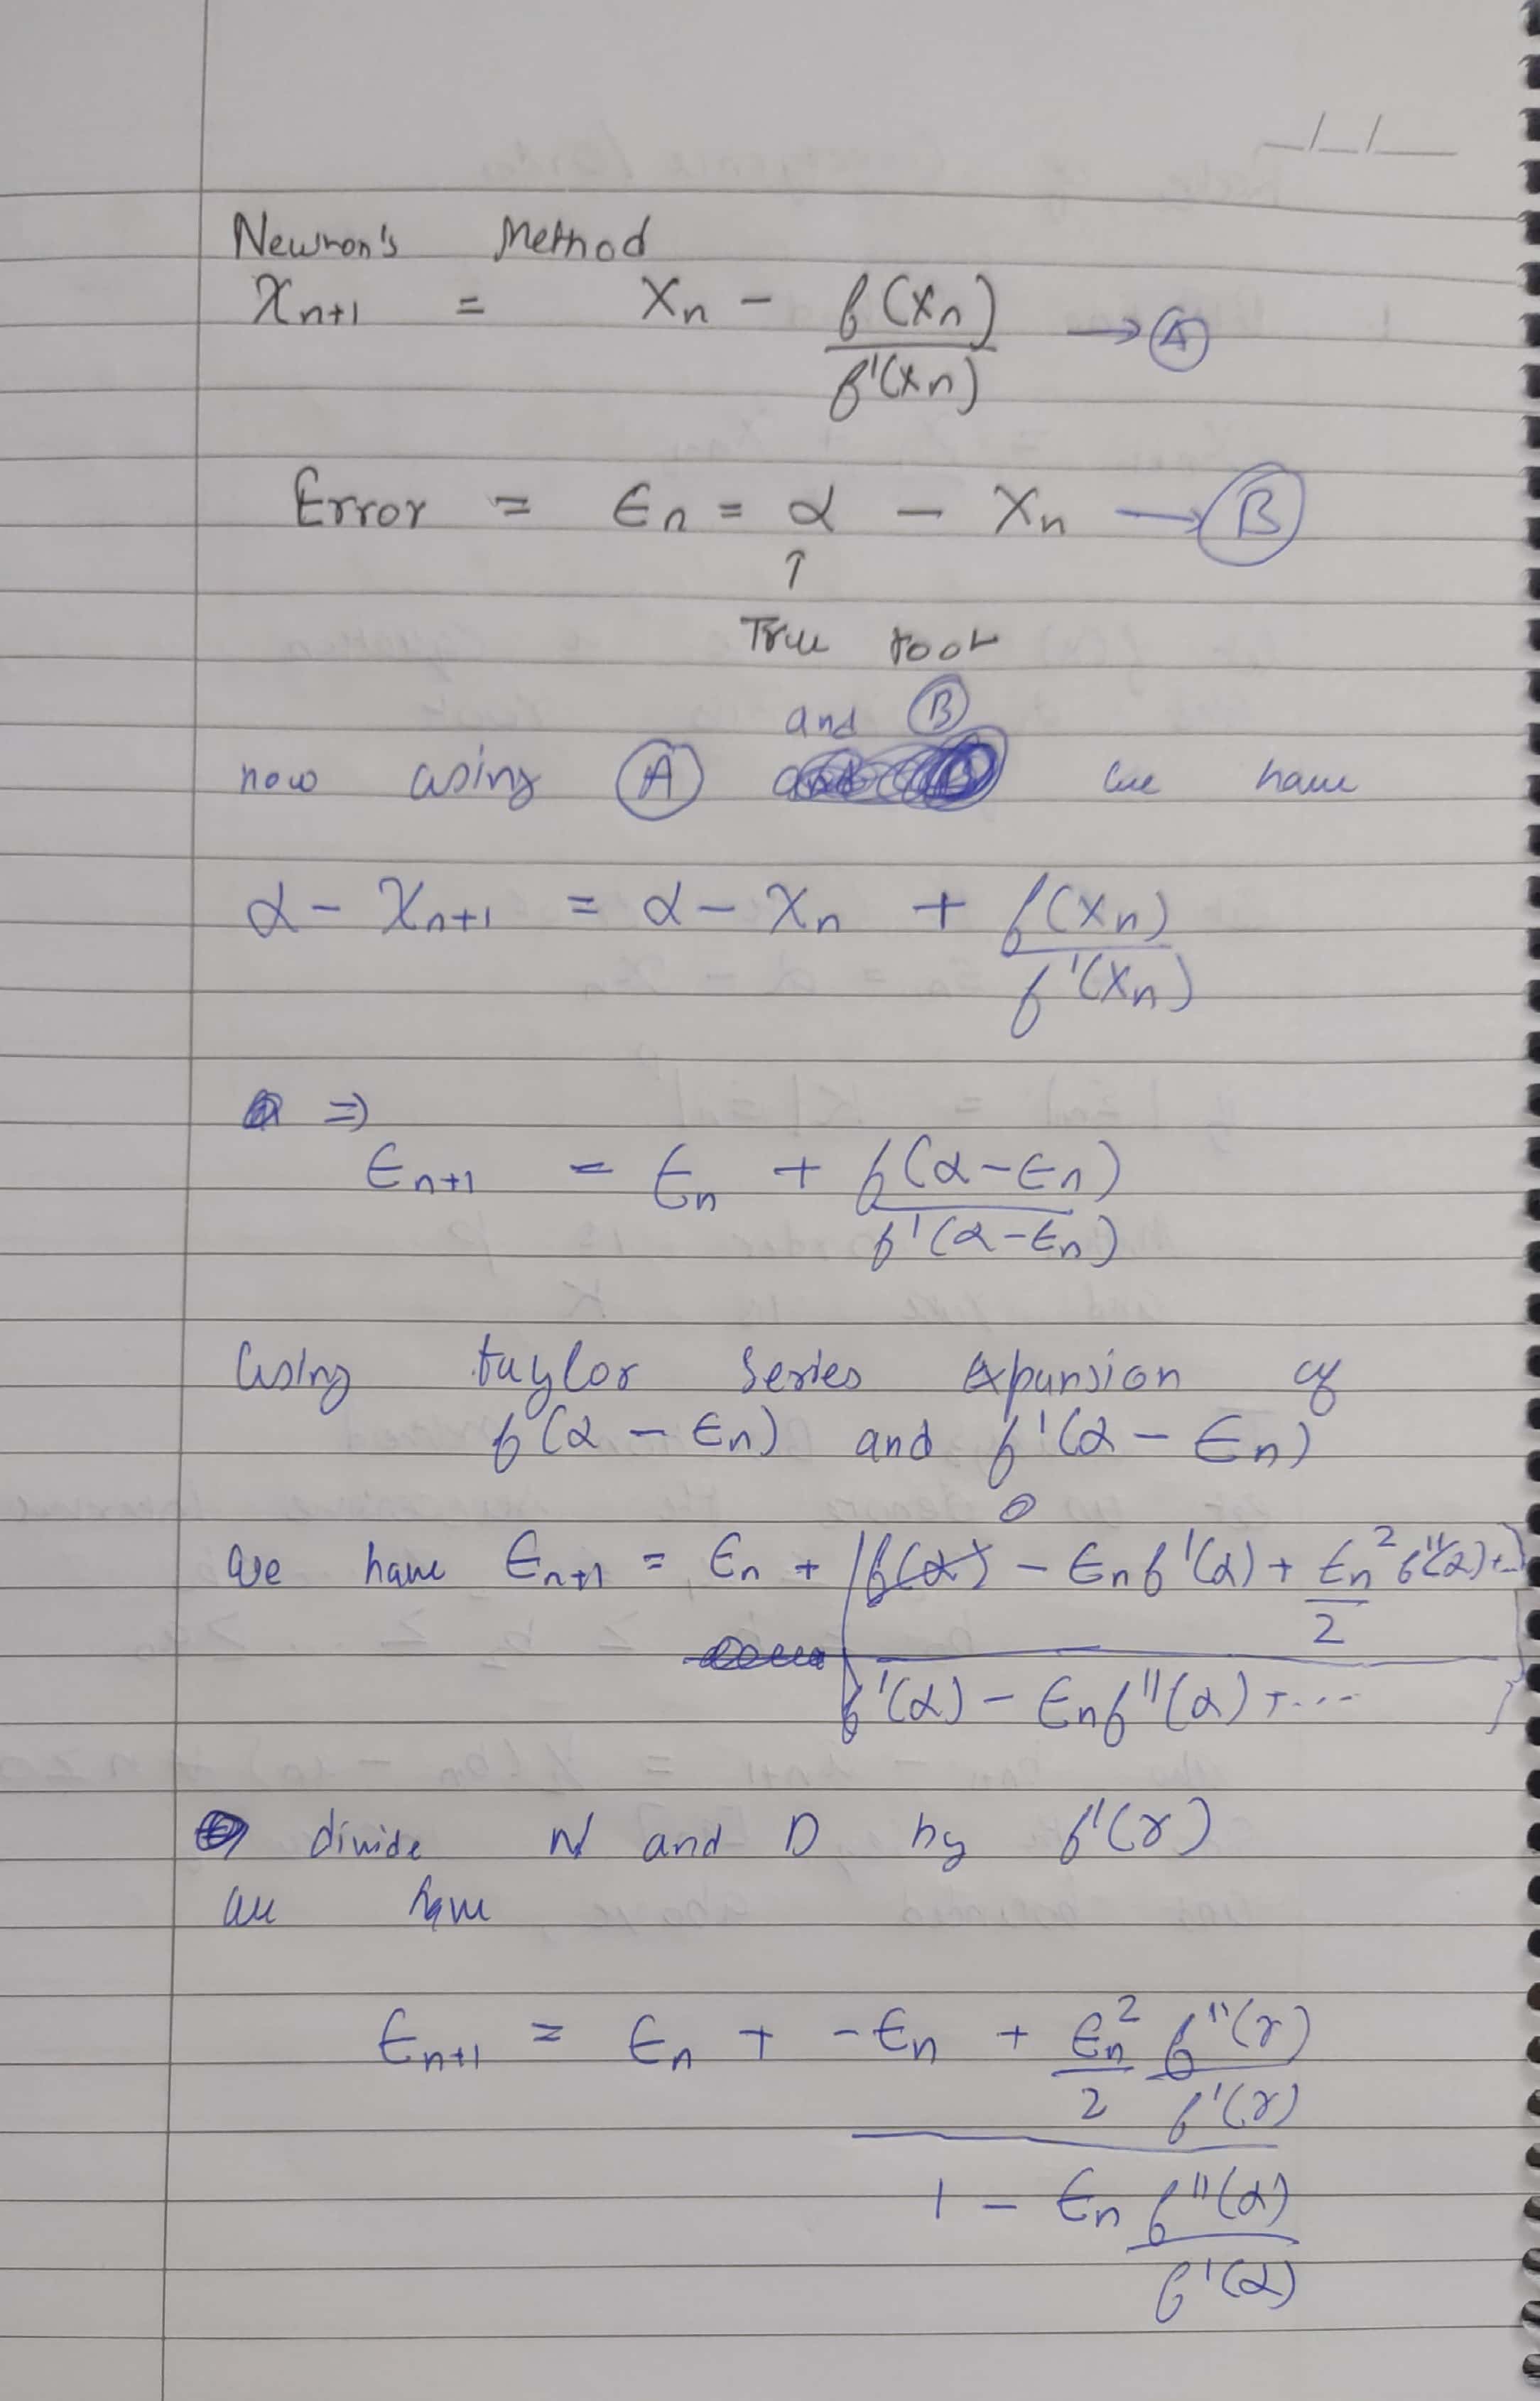 Newton's Method
x_{n+1} = x_n - f(x_n) / f'(x_n) → Ⓐ
Error = ϵ_n = α - x_n → Ⓑ
↑
True root
and Ⓑ
now using Ⓐ we have
α - x_{n+1} = α - x_n + f(x_n) / f'(x_n)
⇒
ϵ_{n+1} = ϵ_n + f(α-ϵ_n) / f'(α-ϵ_n)
Using taylor series expansion of
f(α - ϵ_n) and f'(α - ϵ_n)
0
we have ϵ_{n+1} = ϵ_n + [f(α) - ϵ_n f'(α) + ϵ_n^2 / 2 f''(α) + ...
f'(α) - ϵ_n f''(α) + ... ]
divide N and D by f'(r)
we have
ϵ_{n+1} = ϵ_n + -ϵ_n + ϵ_n^2 / 2 f''(r) / f'(r)
1 - ϵ_n f''(α) / f'(α)